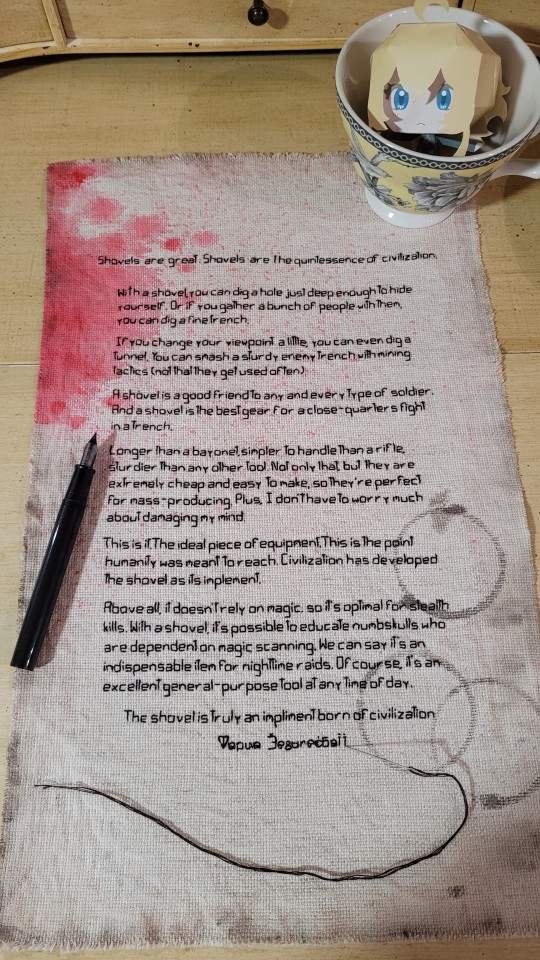 Shovels are great. Shovels are the quintessence of civilization.
With a shovel, you can dig a hole just deep enough to hide
yourself. Or if you gather a bunch of people with then,
you can dig a fine trench.
If you change your viewpoint a little, you can even dig a
tunnel. You can smash a sturdy enemy trench with mining
tactics (not that they get used often)
A shovel is a good friend to any and every type of soldier.
And a shovel is the best gear for a close-quarters fight
in a trench.
Longer than a bayonet, simpler to handle than a rifle,
sturdier than any other tool. Not only that, but they are
extremely cheap and easy to make, so they're perfect
for mass-producing. Plus, I don't have to worry much
about damaging my mind.
This is it. The ideal piece of equipment. This is the point
humanity was meant to reach. Civilization has developed
the shovel as its implement.
Above all, it doesn't rely on magic, so it's optimal for stealth
kills. With a shovel, it's possible to educate numbskulls who
are dependent on magic scanning. We can say it's an
indispensable item for nighttime raids. Of course, it's an
excellent general-purpose tool at any time of day.
The shovel is truly an impliment born of civilization